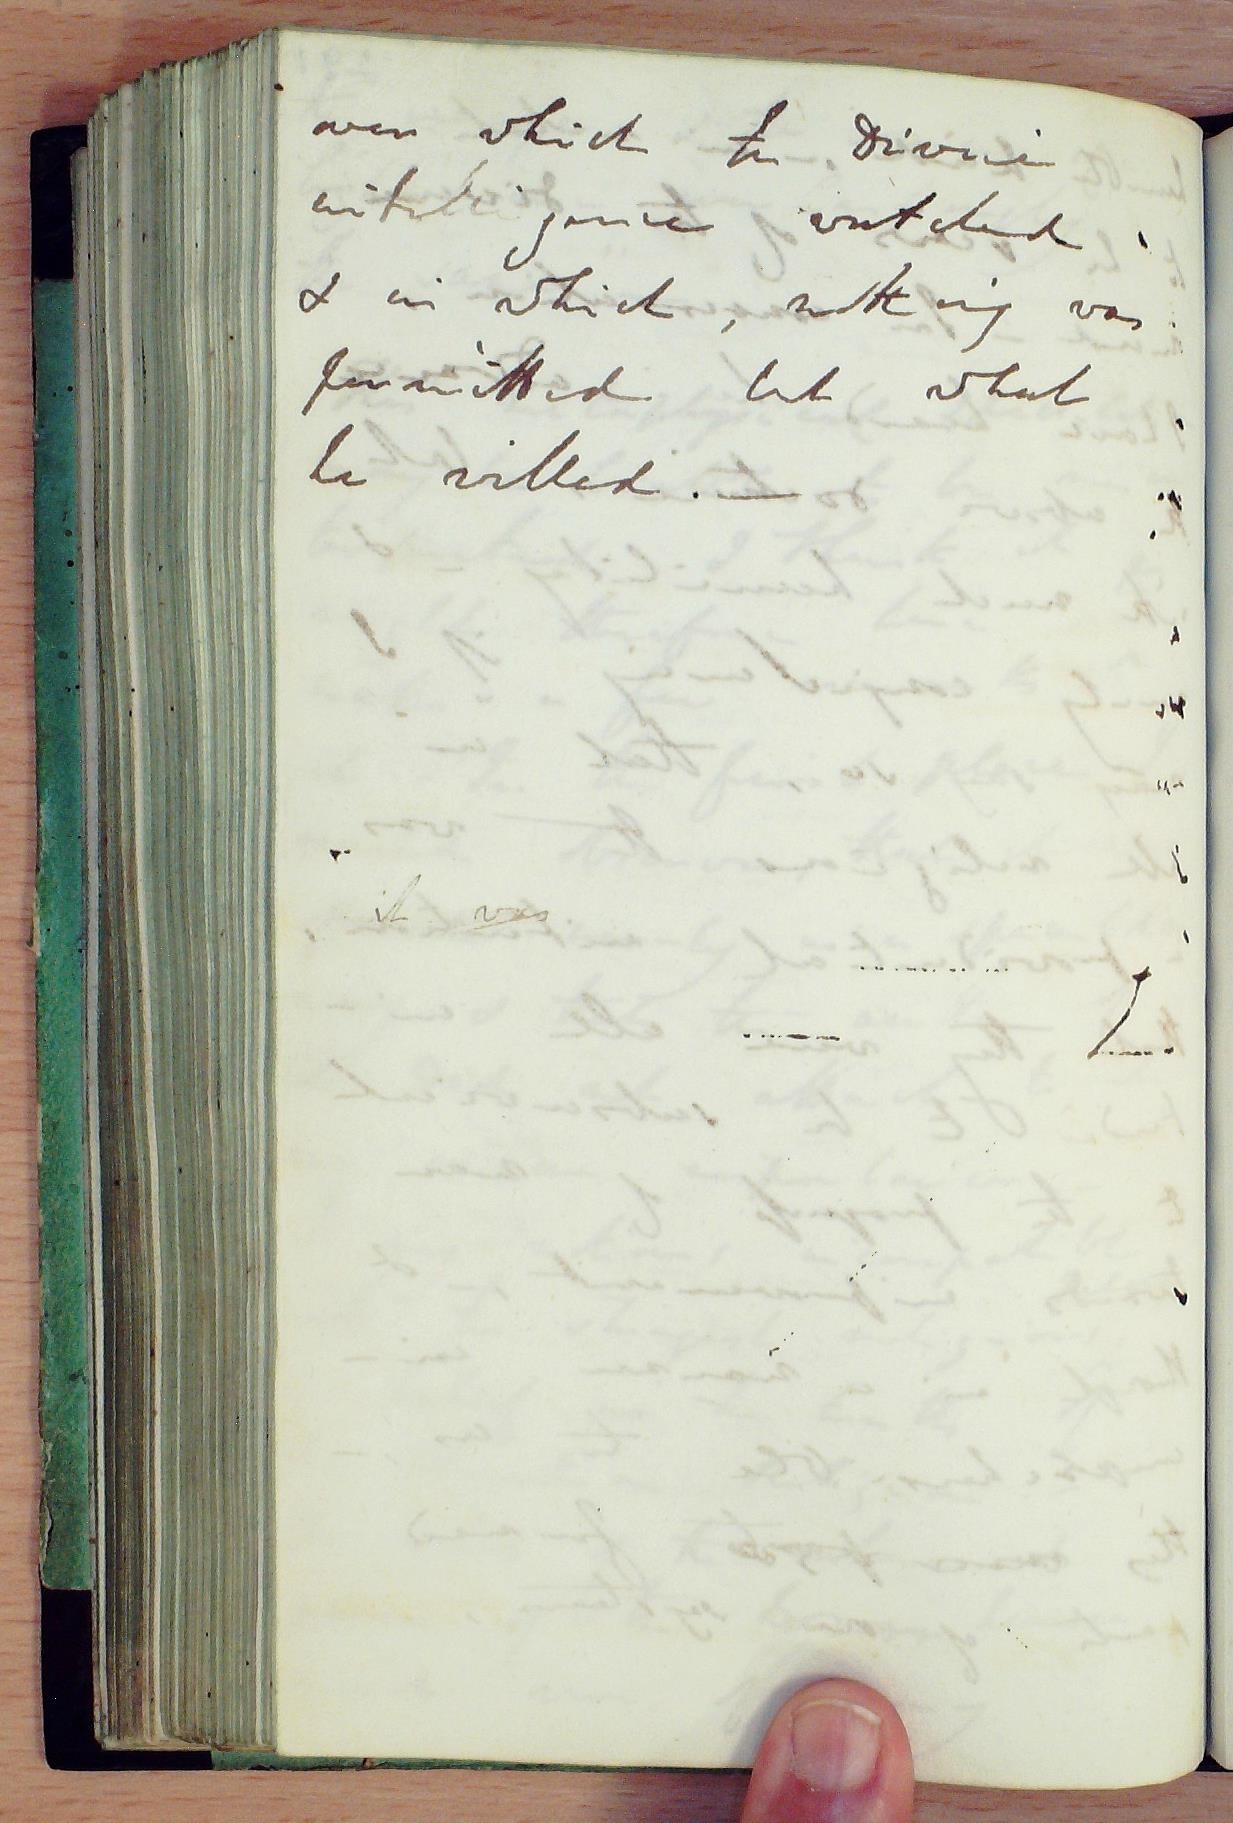 over which the Divine
intelligence watched
& in which, nothing was
permitted but what
he willed. —
it was